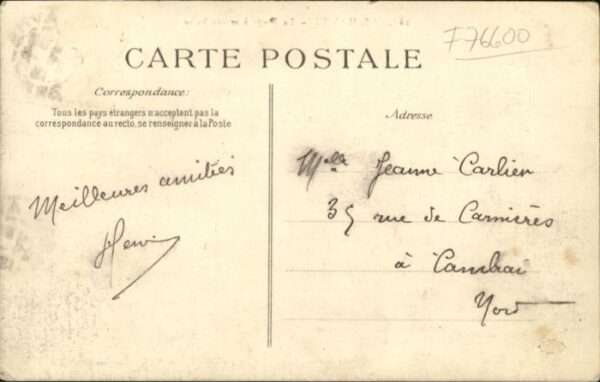 F76600
CARTE POSTALE
Correspondance:
Tous les pays étrangers n'acceptent pas la
correspondance au recto, se renseigner à la Poste
Adresse
Meilleures amitiés
Henri
Melle Jeanne Carlier
35 rue de Carnières
à Cambrai
Nord